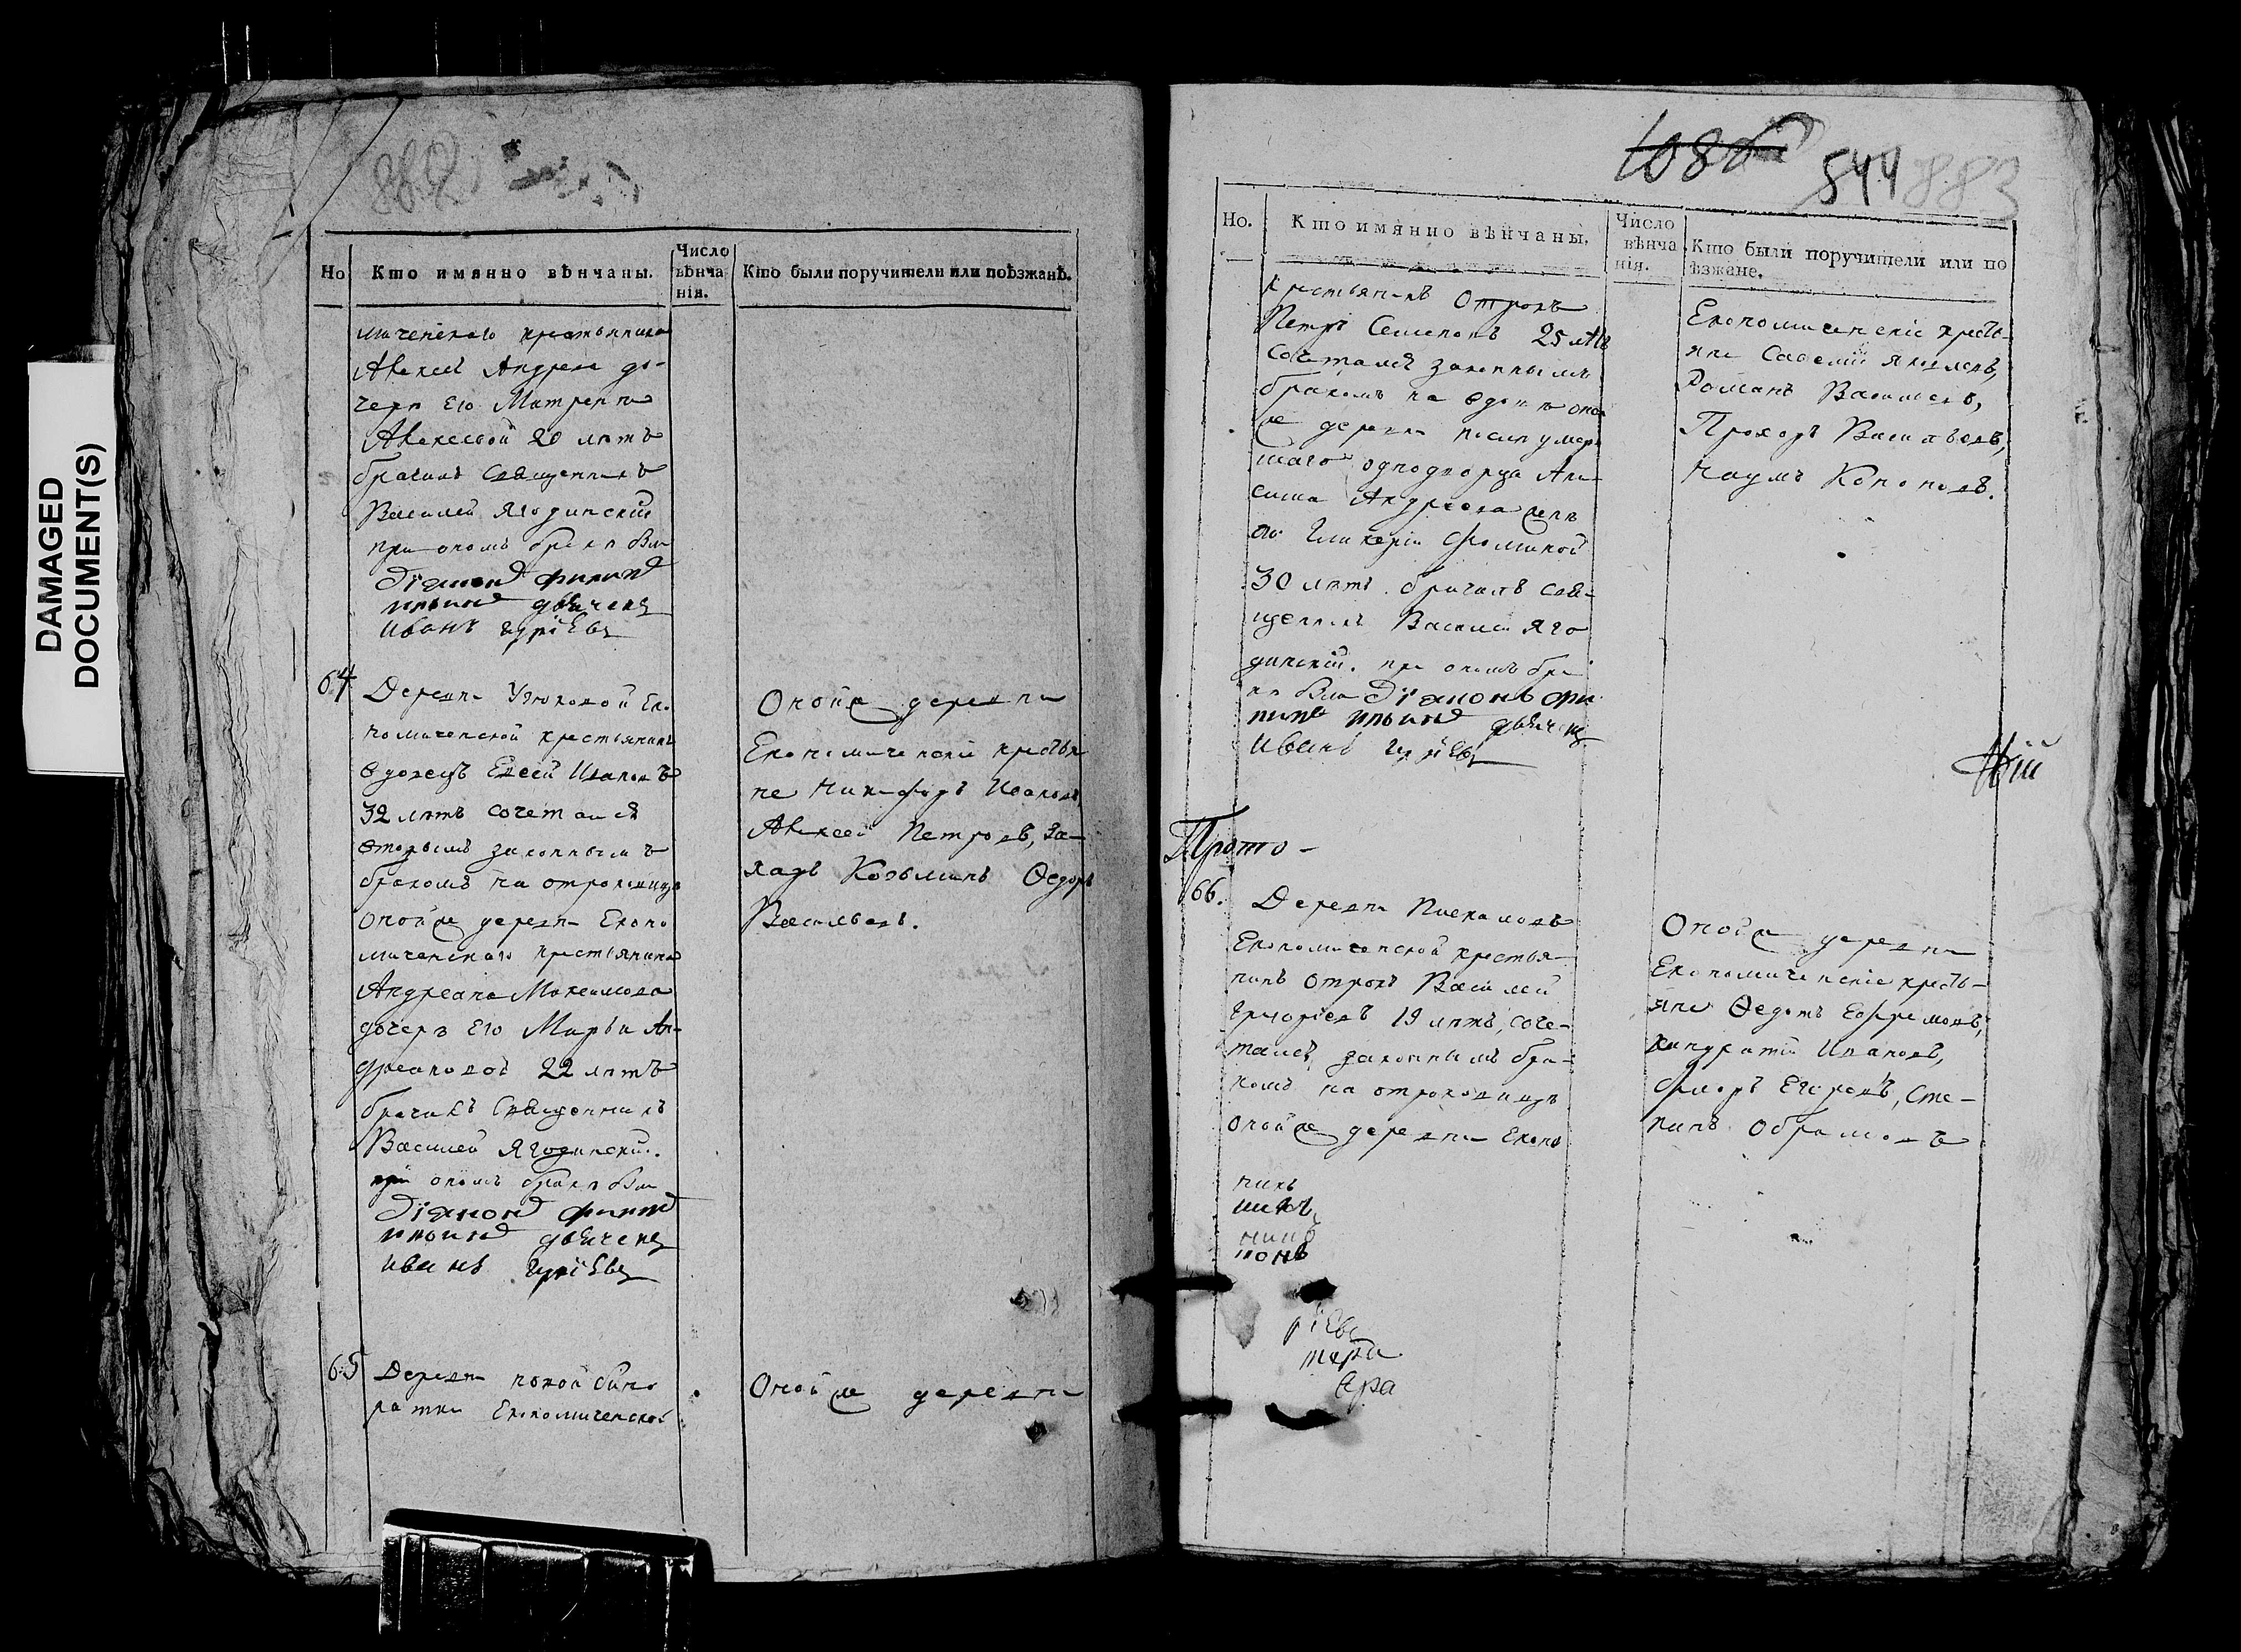 DAMAGED
DOCUMENT(S)
882
Но
Кто имянно вѣнчаны.
Число
вѣнча
нія.
Кто были поручители или поѣзжанѣ.
мическаго крестьянина
Алексѣя Андрева до-
чери Его Матрены
Алексевой 20 лѣтъ
бра­чилъ Священникъ
Василей Ягодинскій
при ономъ бракѣ были
Діаконъ Филипъ
Ильинъ дьячекъ
Иванъ Гурієвъ
64
Деревни Узюковой Еко
номической крестьянинъ
вдовецъ Елсей Ивановъ
32 лѣтъ сочетался
вторымъ законнымъ
бракомъ на отроковицѣ
оной же деревни Еконо
мическаго крестьянина
Андреана Максимова
дочерѣ Его Марьи Ан-
дреановой 22 лѣтъ
брачилъ Священникъ
Василей Ягодинскій.
при ономъ бракѣ были
Діаконъ Филипъ
Ильинъ дьячекъ
Иванъ Гурієвъ
Оной же деревни
Економическіе крестья
не Никифоръ Ивановъ,
Алексей Петровъ, За-
харъ Козьминъ Ѳедоръ
Васильевъ.
65
Деревни новой бино
ратки Економической
Оной же деревни
1086
544
883
Но.
Кто имянно вѣнчаны.
Число
вѣнча
нія.
Кто были поручители или по
ѣзжане.
крестьянинъ Отрокъ
Петръ Семеновъ 25 лѣтъ
Сочетался законнымъ
бракомъ на вдовѣ оной
же деревни послѣ умер
шаго однодворца Ани-
сима Андреева женѣ
его Гликеріи Фоминой
30 лѣтъ. брачилъ Свя-
щенникъ Василей Яго
динскій. при ономъ бра
кѣ были Діаконъ Фи
липъ Ильинъ дьячекъ
Иванъ Гурієвъ
Економическіе кресть-
яне Савелій Яковлевъ,
Романъ Васильевъ,
Прохоръ Васильевъ,
Наумъ Кононовъ.
Прото-
66.
Деревни Пискаловъ
Економической крестья
нинъ Отрокъ Василей
Григорьевъ 19 лѣтъ, соче-
тался законнымъ бра-
комъ на отроковицѣ
оной же деревни Еконо
Оной же деревни
Економическіе кресть-
яне Ѳедотъ Ефремовъ,
Кандратій Ивановъ,
Флоръ Егоровъ, Сте-
панъ Абрамовъ